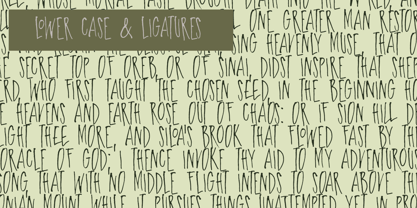 LOWER CASE & LIGATURES
ONE GREATER MAN RESTO
ING HEAVENLY MUSE, THAT O
E SECRET TOP OF OREB, OR OF SINAI, DIDST INSPIRE THAT SHEP
ERD, WHO FIRST TAUGHT THE CHOSEN SEED, IN THE BEGINNING HO
E HEAVENS AND EARTH ROSE OUT OF CHAOS: OR IF SION HILL D
LIGHT THEE MORE, AND SILOA'S BROOK THAT FLOWED FAST BY T
ORACLE OF GOD; I THENCE INVOKE THY AID TO MY ADVENTUROU
SONG, THAT WITH NO MIDDLE FLIGHT INTENDS TO SOAR ABOVE TH
ONIAN MOUNT WHILE IT PURSUES THINGS UNATTEMPTED YET IN PR